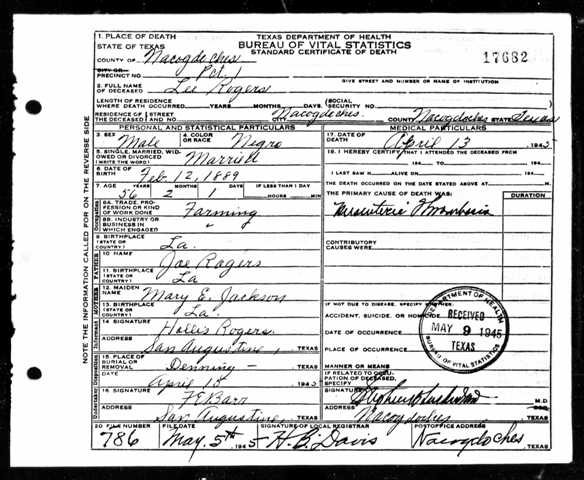 TEXAS DEPARTMENT OF HEALTH
BUREAU OF VITAL STATISTICS
STANDARD CERTIFICATE OF DEATH
17682
1. PLACE OF DEATH
STATE OF TEXAS
COUNTY OF Nacogdoches
CITY OR PRECINCT NO. Pct. 1
GIVE STREET AND NUMBER OR NAME OF INSTITUTION
2. FULL NAME OF DECEASED Lee Rogers
LENGTH OF RESIDENCE WHERE DEATH OCCURRED YEARS MONTHS DAYS (SOCIAL SECURITY NO.
RESIDENCE OF THE DECEASED STREET AND NO. Nacogdoches. COUNTY Nacogdoches STATE Texas
PERSONAL AND STATISTICAL PARTICULARS
3. SEX Male 4. COLOR OR RACE Negro
5. SINGLE, MARRIED, WIDOWED OR DIVORCED (WRITE) Married
6. DATE OF BIRTH Feb. 12, 1889
7. AGE YEARS 56 MONTHS 2 DAYS 1 IF LESS THAN 1 DAY HOURS MIN
8A. TRADE, PROFESSION OR KIND OF WORK DONE Farming
8B. INDUSTRY OR BUSINESS IN WHICH ENGAGED "
9. BIRTHPLACE (STATE OR COUNTRY) La.
10. NAME Joe Rogers
11. BIRTHPLACE (STATE OR COUNTRY) La
12. MAIDEN NAME Mary E. Jackson
13. BIRTHPLACE (STATE OR COUNTRY) La.
14. SIGNATURE Hollis Rogers
ADDRESS San Augustine, TEXAS
15. PLACE OF BURIAL OR REMOVAL Denning - TEXAS
DATE April 15 1945
16. SIGNATURE F E Barr
ADDRESS San Augustine, TEXAS
MEDICAL PARTICULARS
17. DATE OF DEATH April 13 1945
18. I HEREBY CERTIFY THAT I ATTENDED THE DECEASED FROM
194 TO 194
I LAST SAW H ALIVE ON 194
THE DEATH OCCURRED ON THE DATE STATED ABOVE AT M.
THE PRIMARY CAUSE OF DEATH WAS: DURATION
Mesenteric Thrombosis
CONTRIBUTORY CAUSES WERE:
IF NOT DUE TO DISEASE, SPECIFY WHETHER:
ACCIDENT, SUICIDE, OR HOMICIDE
DATE OF OCCURRENCE
PLACE OF OCCURRENCE
MANNER OR MEANS
IF RELATED TO OCCUPATION OF DECEASED, SPECIFY
SIGNATURE M.D.
ADDRESS Nacogdoches TEXAS
DEPARTMENT OF HEALTH
RECEIVED
MAY 9 1945
TEXAS
BUREAU OF VITAL STATISTICS
20 FILE NUMBER 786
FILE DATE May. 5th 1945
SIGNATURE OF LOCAL REGISTRAR H. B. Davis
POSTOFFICE ADDRESS Nacogdoches, TEXAS
NOTE THE INFORMATION CALLED FOR ON THE REVERSE SIDE
Occupation
FATHER
MOTHER
Informant
Disposition
Undertaker